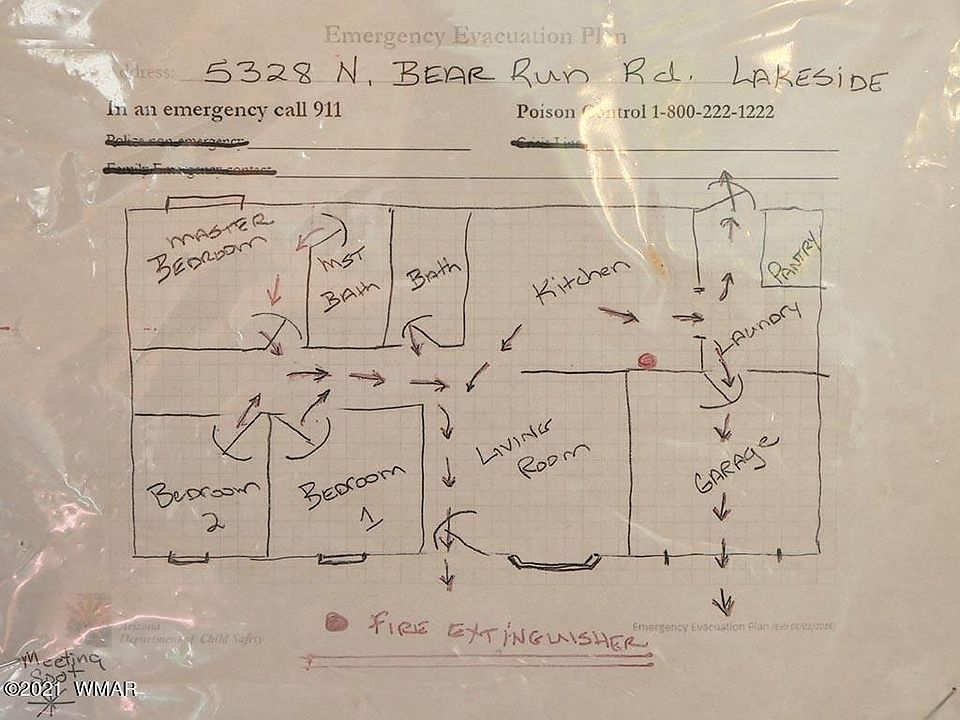 Emergency Evacuation Plan
Address: 5328 N. BEAR Run Rd. LAKESIDE
In an emergency call 911
Poison Control 1-800-222-1222
MASTER
BEDROOM
MST
BATH
Bath
Kitchen
PANTRY
LAUNDRY
Bedroom
2
BEDROOM
1
LIVING
ROOM
GARAGE
FIRE EXTINGUISHER
Arizona
Department of Child Safety
Emergency Evacuation Plan
Meeting
Spot
©2021 WMAR